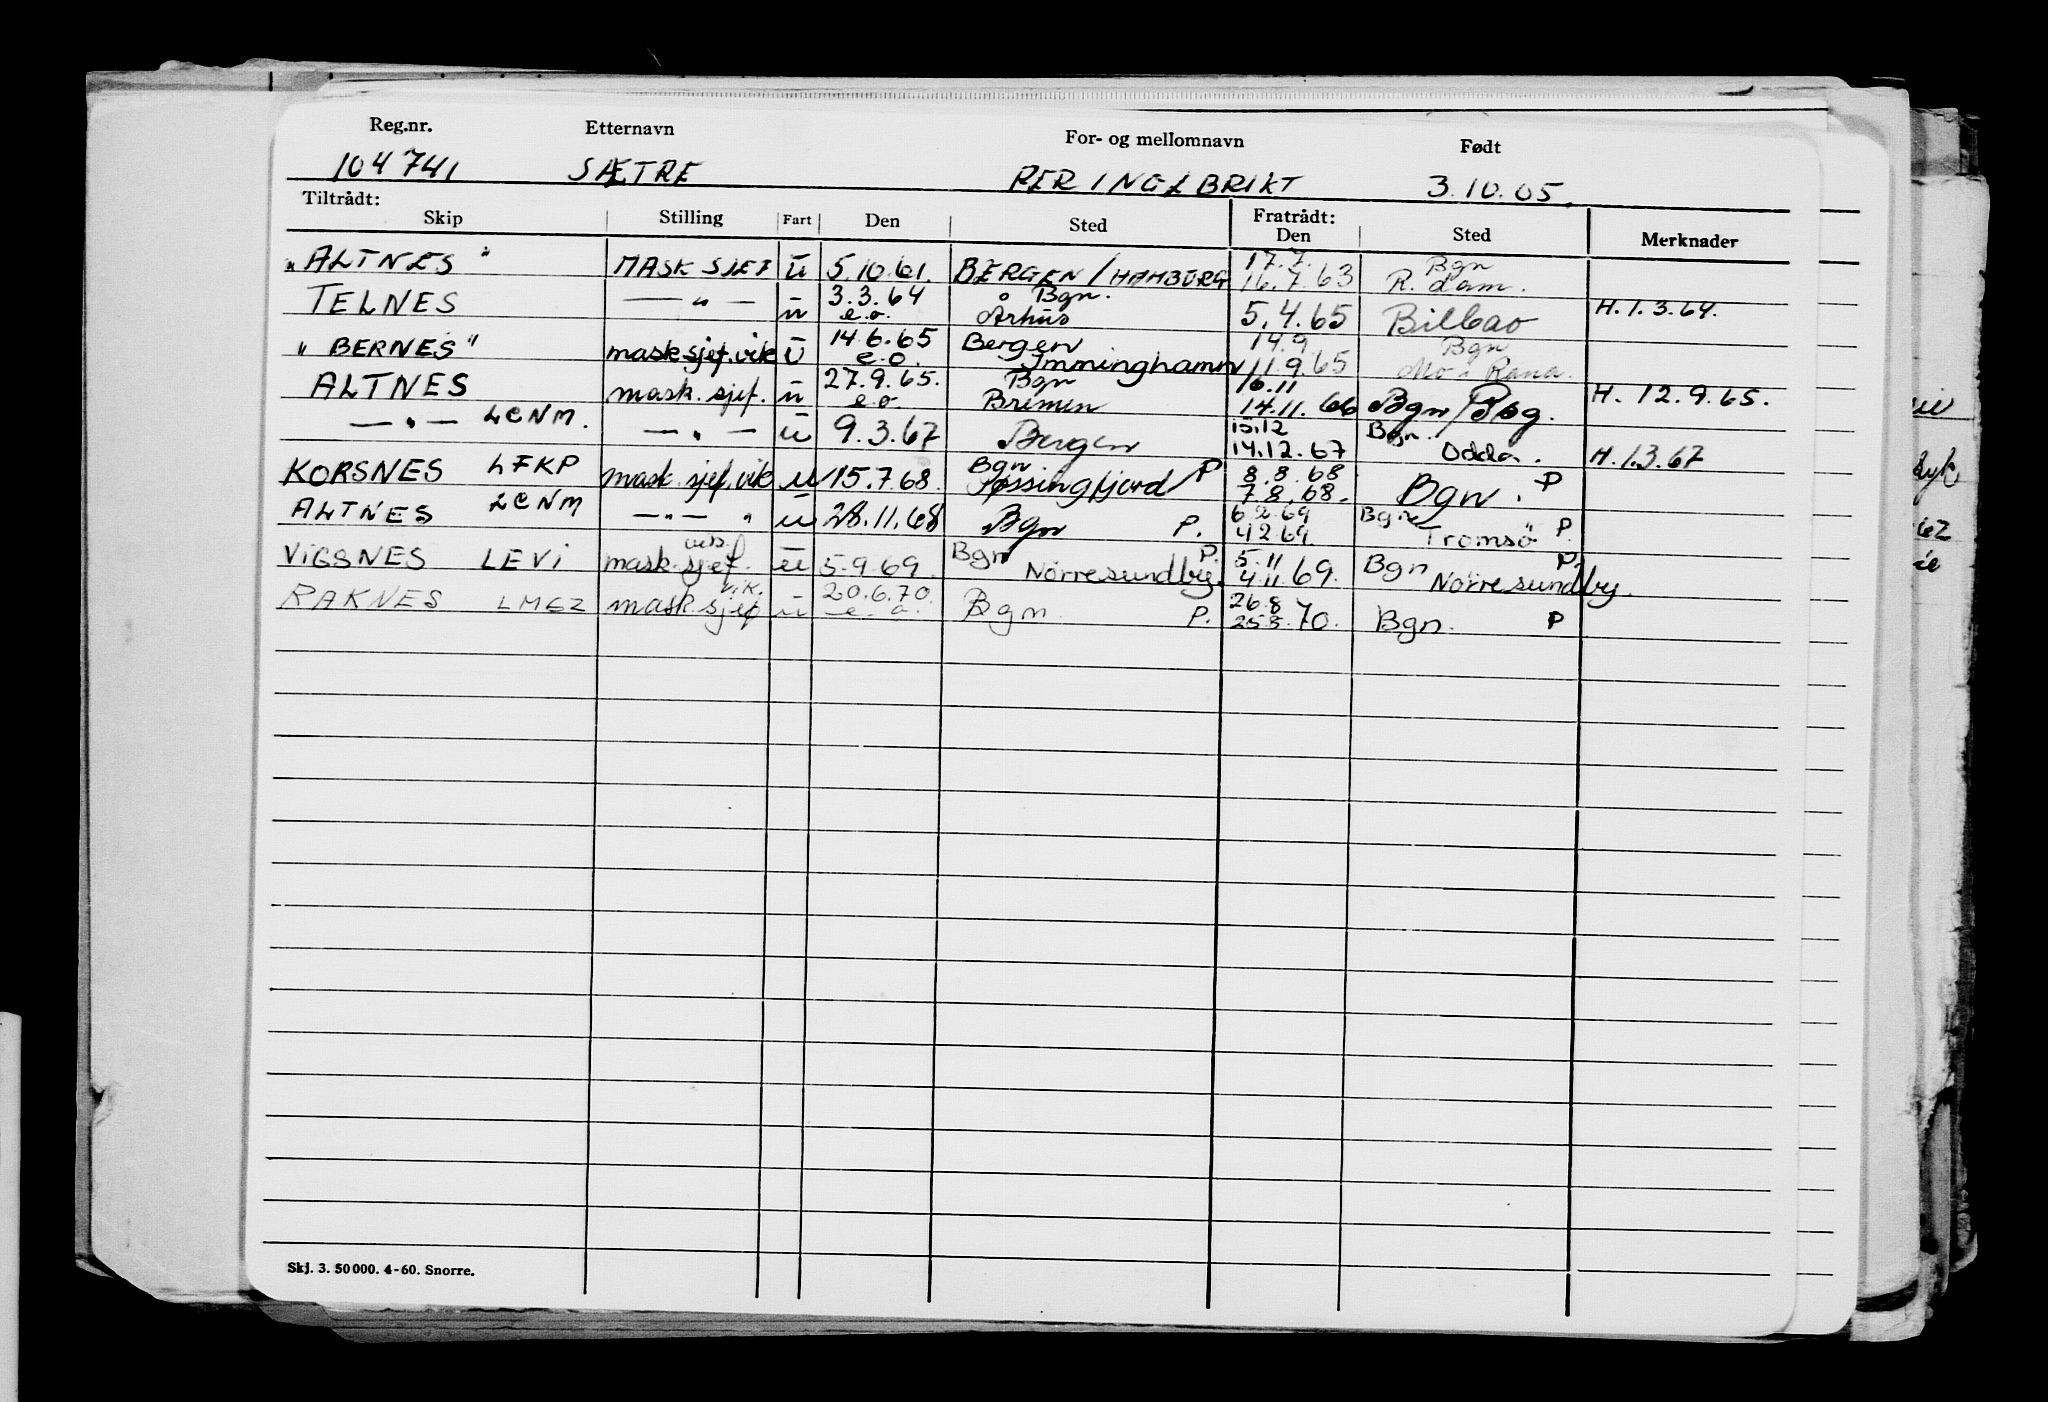 Reg.nr. Etternavn For- og mellomnavn Født
104741 SÆTRE PER INGEBRIKT 3.10.05.
Tiltrådt: Fratrådt:
Skip Stilling Fart Den Sted Den Sted Merknader
"ALTNES" MASK SJEF u 5.10.61. BERGEN/HAMBURG 17.7. 16.7.63 Bgn R.dam.
TELNES —"— u 3.3.64 e.o. Bgn. Århus 5.4.65 Bilbao H.1.3.64.
"BERNES" mask sjef. vik u 14.6.65 e.o. Bergen Imminghamn 14.9 11.9.65 Bgn Mo i Rana.
ALTNES mask. sjef. u 27.9.65. e.o. Bgn Bremen 16.11 14.11.66 Bgn/ H. 12.9.65.
—"— LCNM. —"— u 9.3.67 Bergen 15.12 14.12.67 Bgn. Odda. H.1.3.67
KORSNES LFKP mask. sjef. vik u 15.7.68. Bgn Jøssingfjord P 8.8.68 7.8.68. Bgn. P
ALTNES LCNM —"— " u 28.11.68 Bgn P. 6.2.69 4.2.69 Bgn Tromsö P.
VIGSNES LEVI mask. sjef. u 5.9.69. Bgn Nörresundby. P. 5.11 4.11.69. Bgn Nörresundby. P.
RAKNES LMGZ mask sjef vik. u 20.6.70. e.o. Bgn. P. 26.8 25.8.70. Bgn. P
Skj. 3. 50 000. 4-60. Snorre.